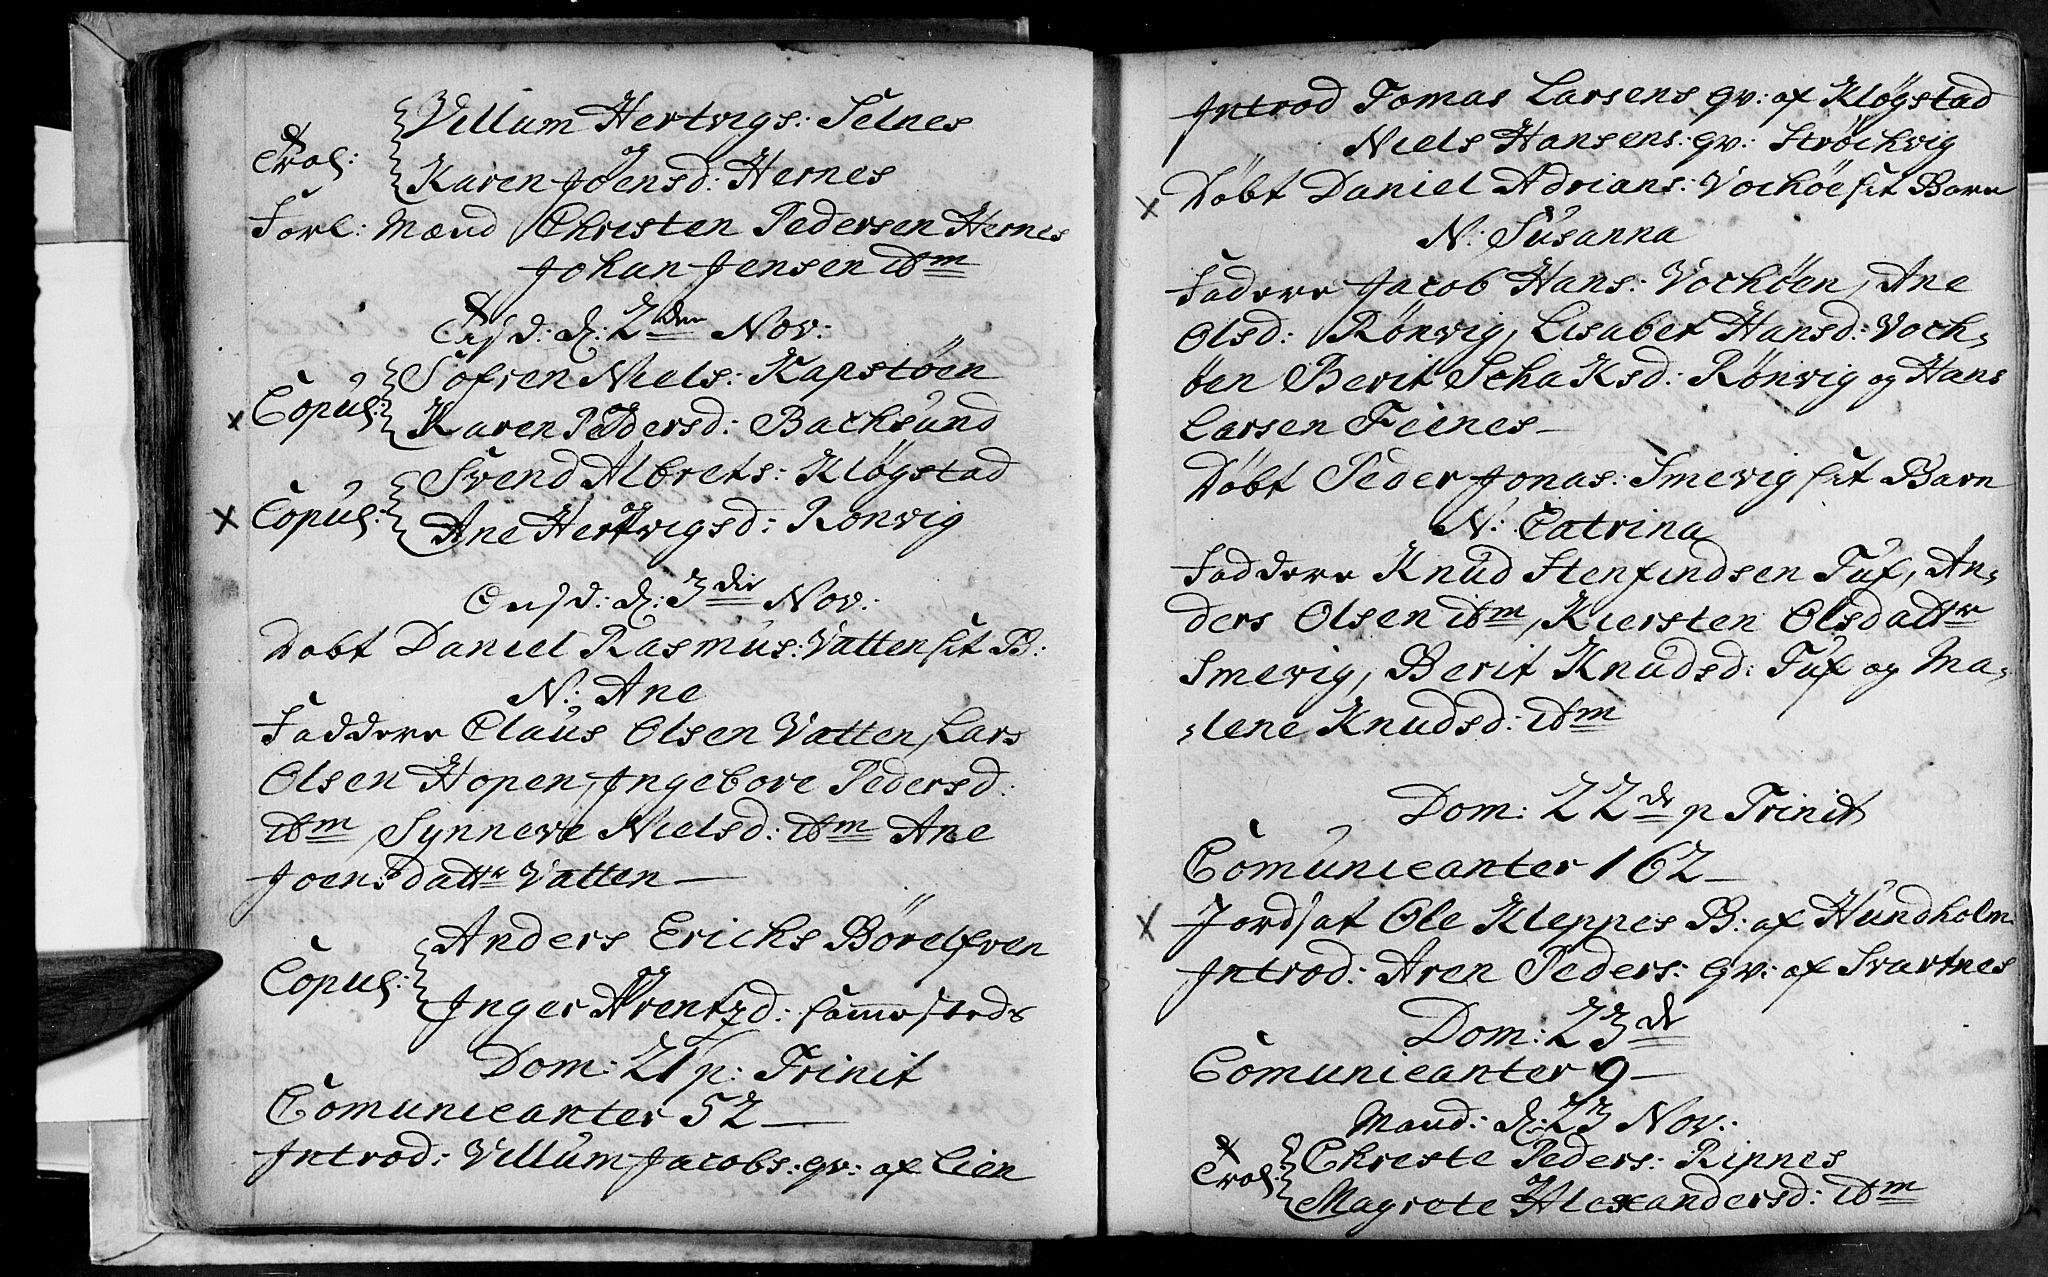 Villum Hertvigs: Selnes
Trol: og
Karen Joensd: Hernes
Forl: Mænd Christen Pedersen Hernes
Johan Jensen ibm
d: 2den Nov:
Sofren Niels: Kapstøen
Copul: og
Karen Pedersd: Bachsund
Svend Albrets: Kløgstad
Copul: og
Ane Hertvigsd: Rønvig
Onsd: d: 3die Nov:
Døbt Daniel Rasmus: Vatten sit B:
N: Ane
Faddere Claus Olsen Vatten, Lars
Olsen Hopen, Ingebore Pedersd:
ibm, Synneve Nielsd: ibm Ane
Joensdattr Vatten —
Anders Erichs Børelfven
Copul: og
Inger Arentzd: sammesteds
Dom: 21 p: Trinit
Comunicanter 52 —
Introd: Villum Jacobs: qv: af Lien
Introd Tomas Larsens qv: af Kløgstad
Niels Hansens: qv: Strøchvig
Døbt Daniel Adrians: Vochøe sit Barn
N: Susanna
Faddere Jacob Hans: Vochøen, Ane
Olsd: Rønvig, Lisabet Hansd: Voch,,
øen Berit Schaksd: Rønvig og Hans
Larsen Feines —
Døbt Peder Jonas: Smevig sit Barn
N: Catrina
Faddere Knud Stenfindsen Tuf, An,,
ders Olsen ibm, Kiersten Olsdattr
Smevig, Berit Knudsd: Tuf og Ma,,
,,lene Knudsd: ibm
Dom: 22de p Trinit
Comunicanter 162 —
Jordsat Ole Kleppes B: af Hundholm
Introd: Aren Peders: qv: af Svartnes
Dom: 23de
Comunicanter 9 —
Mand: d: 23 Nov:
Christe Peders: Ripnes
Trol: og
Magrete Alexandersd: ibm